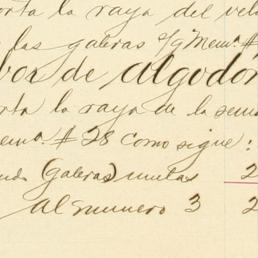 orta la raya del vel
las galeras s/g Mem.ª #
bor de algodón
rta la raya de la sema
em.ª # 28 como sigue:
(galeras) mulas 2
Al numero 3 2